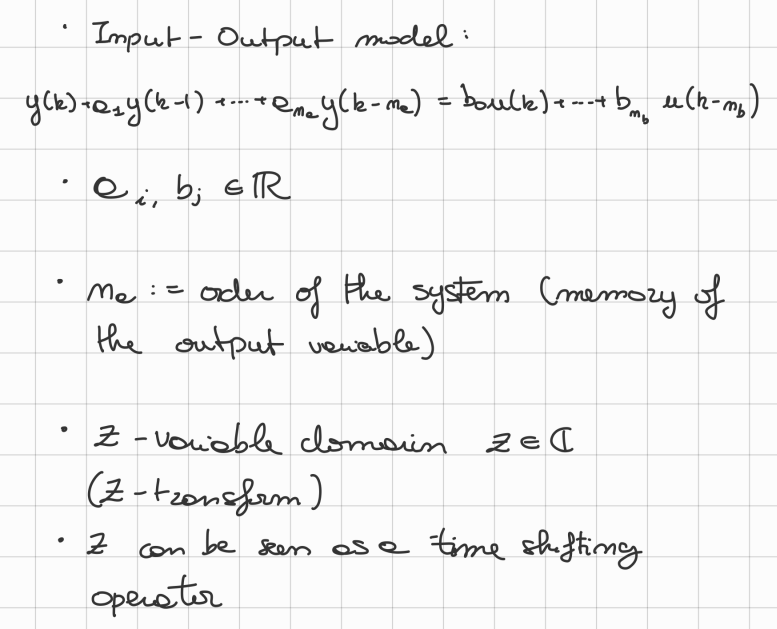 · Input - Output model:
y(k)+a₁y(k-1)+···+aₙₐy(k-nₐ) = b₀u(k)+···+b_{n_b} u(k-n_b)
· aᵢ, bⱼ ∈ ℝ
· nₐ := order of the system (memory of
the output variable)
· Z - variable domain z ∈ ℂ
(Z - transform)
· Z can be seen as a time shifting
operator